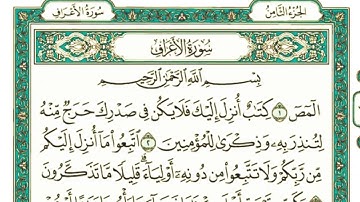 الجزء الثامن
سورة الأعراف
سورة الأعراف
بسم الله الرحمن الرحيم
الٓمٓصٓ ١ كِتَٰبٌ أُنزِلَ إِلَيْكَ فَلَا يَكُن فِى صَدْرِكَ حَرَجٌ مِّنْهُ
لِتُنذِرَ بِهِۦ وَذِكْرَىٰ لِلْمُؤْمِنِينَ ٢ ٱتَّبِعُوا۟ مَآ أُنزِلَ إِلَيْكُم
مِّن رَّبِّكُمْ وَلَا تَتَّبِعُوا۟ مِن دُونِهِۦٓ أَوْلِيَآءَ قَلِيلًا مَّا تَذَكَّرُونَ